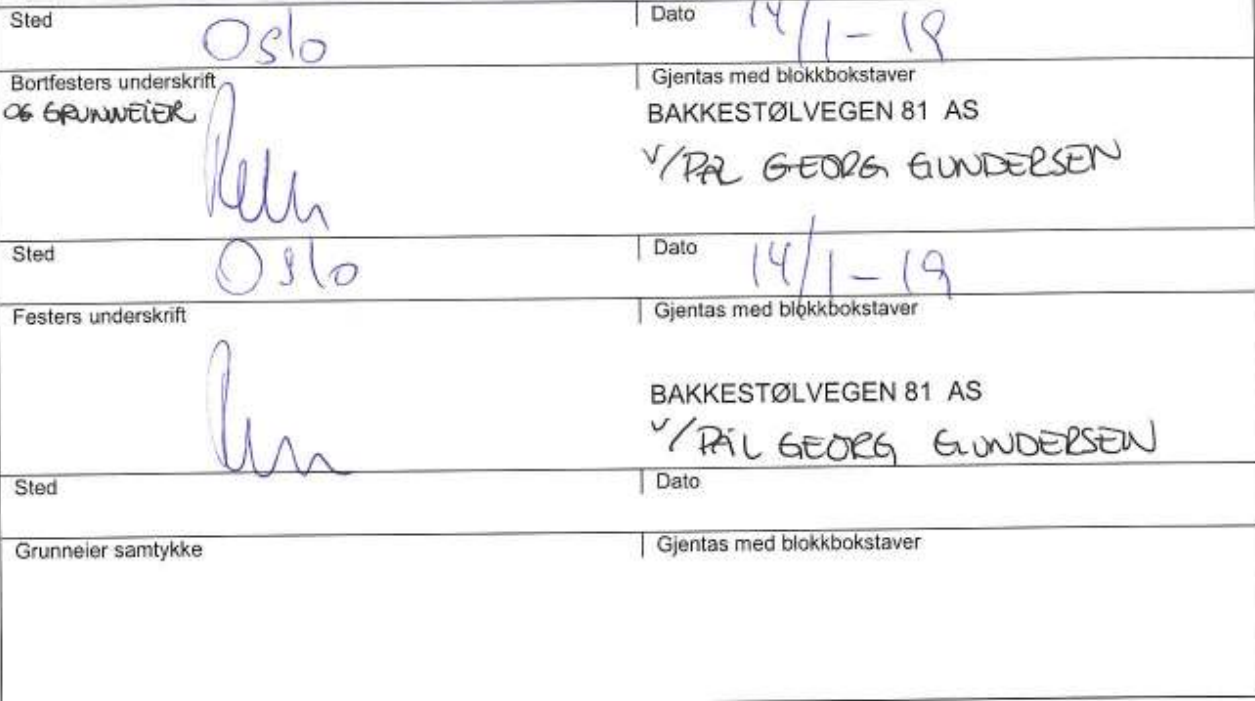 Sted Oslo Dato 14/1-19
Bortfesters underskrift Gjentas med blokkbokstaver
OG GRUNNEIER BAKKESTØLVEGEN 81 AS
V/PÅL GEORG GUNDERSEN
Sted Oslo Dato 14/1-19
Festers underskrift Gjentas med blokkbokstaver
BAKKESTØLVEGEN 81 AS
V/PÅL GEORG GUNDERSEN
Sted Dato
Grunneier samtykke Gjentas med blokkbokstaver